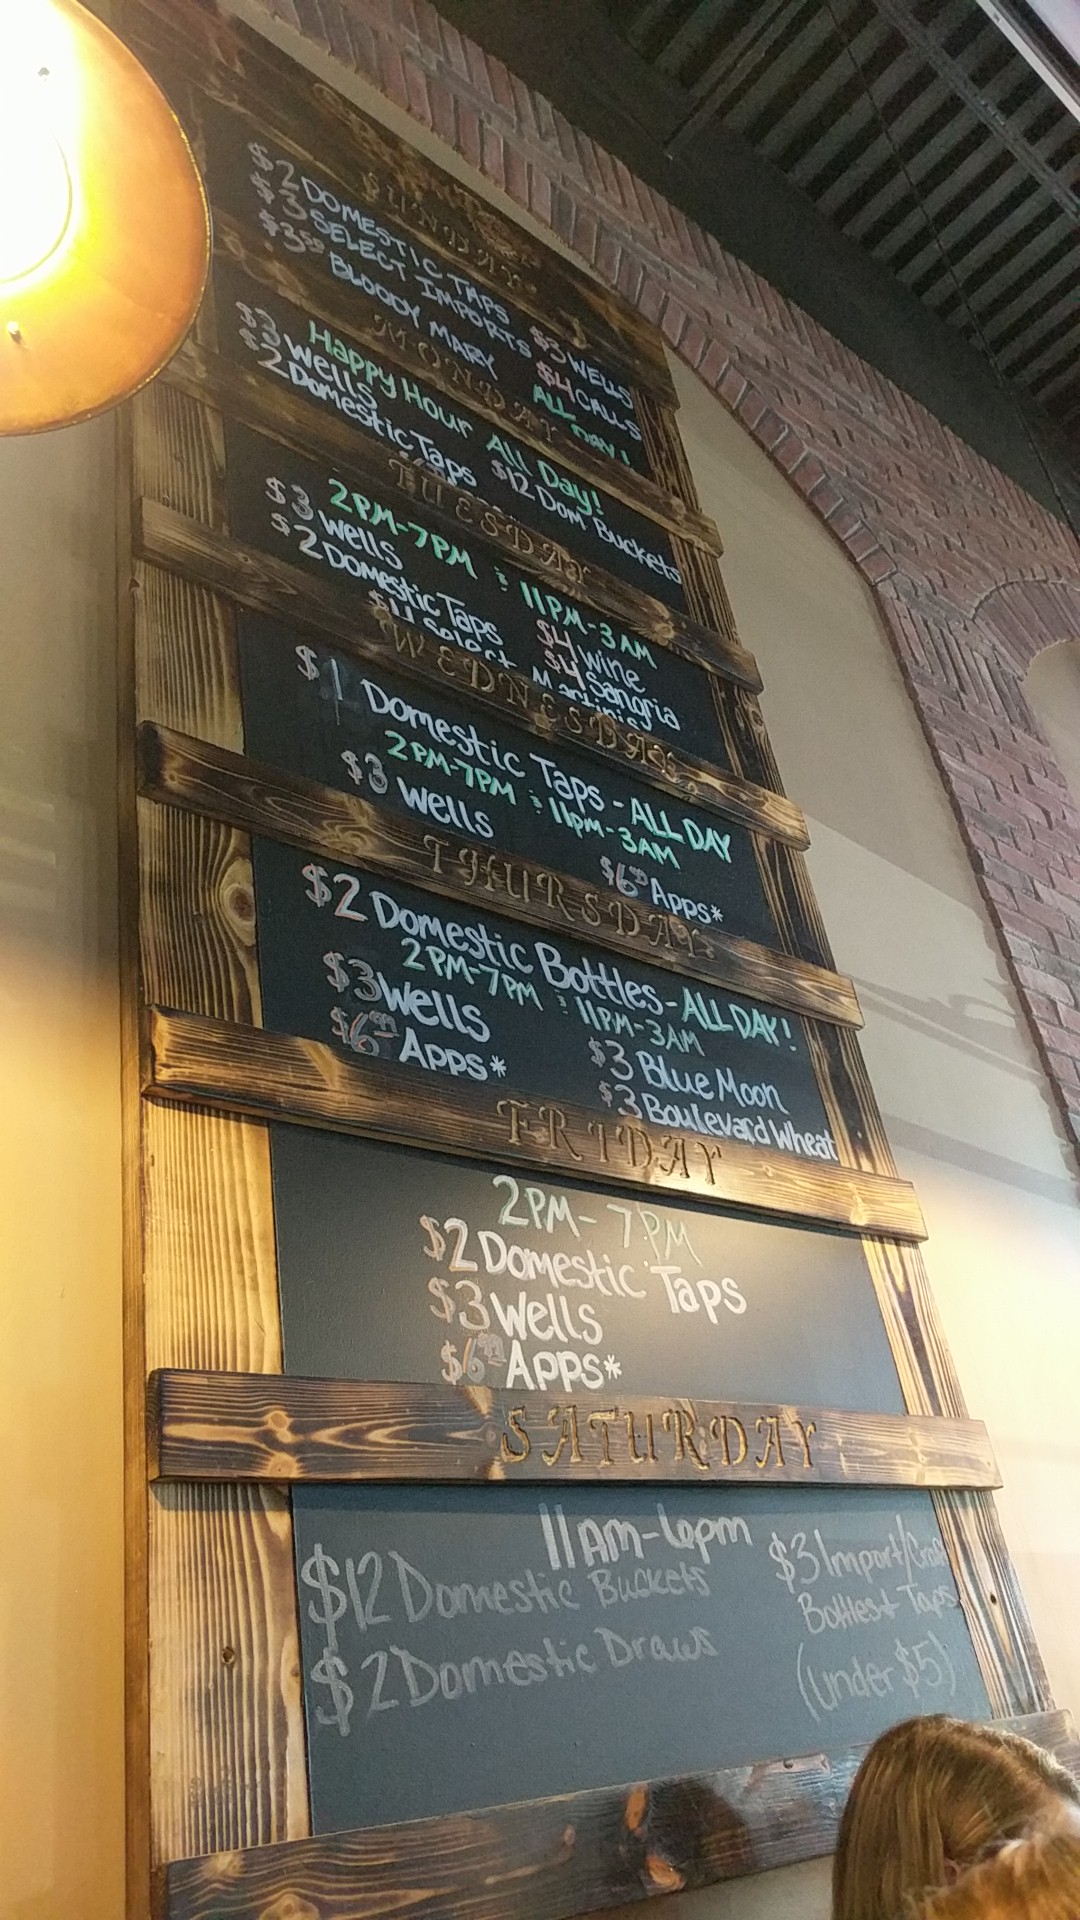 SUNDAY
$2 DOMESTIC TAPS
$3 SELECT IMPORTS
$3.50 BLOODY MARY
$3 WELLS
$4 CALLS
ALL DAY!
MONDAY
Happy Hour All Day!
$3 Wells
$2 Domestic Taps
$12 Dom Buckets
TUESDAY
2PM-7PM & 11PM-3AM
$3 Wells
$2 Domestic Taps
$4 Wine
$4 Sangria
$4 Select Martinis
WEDNESDAY
$1 Domestic Taps - ALL DAY
2PM-7PM & 11PM-3AM
$3 Wells
$6.99 Apps*
THURSDAY
$2 Domestic Bottles - ALL DAY!
2PM-7PM & 11PM-3AM
$3 Wells
$6.99 Apps*
$3 Blue Moon
$3 Boulevard Wheat
FRIDAY
2PM-7PM
$2 Domestic Taps
$3 Wells
$6.99 APPS*
SATURDAY
11AM-6pm
$12 Domestic Buckets
$2 Domestic Draws
$3 Import/Craft
Bottles + Taps
(under $5)